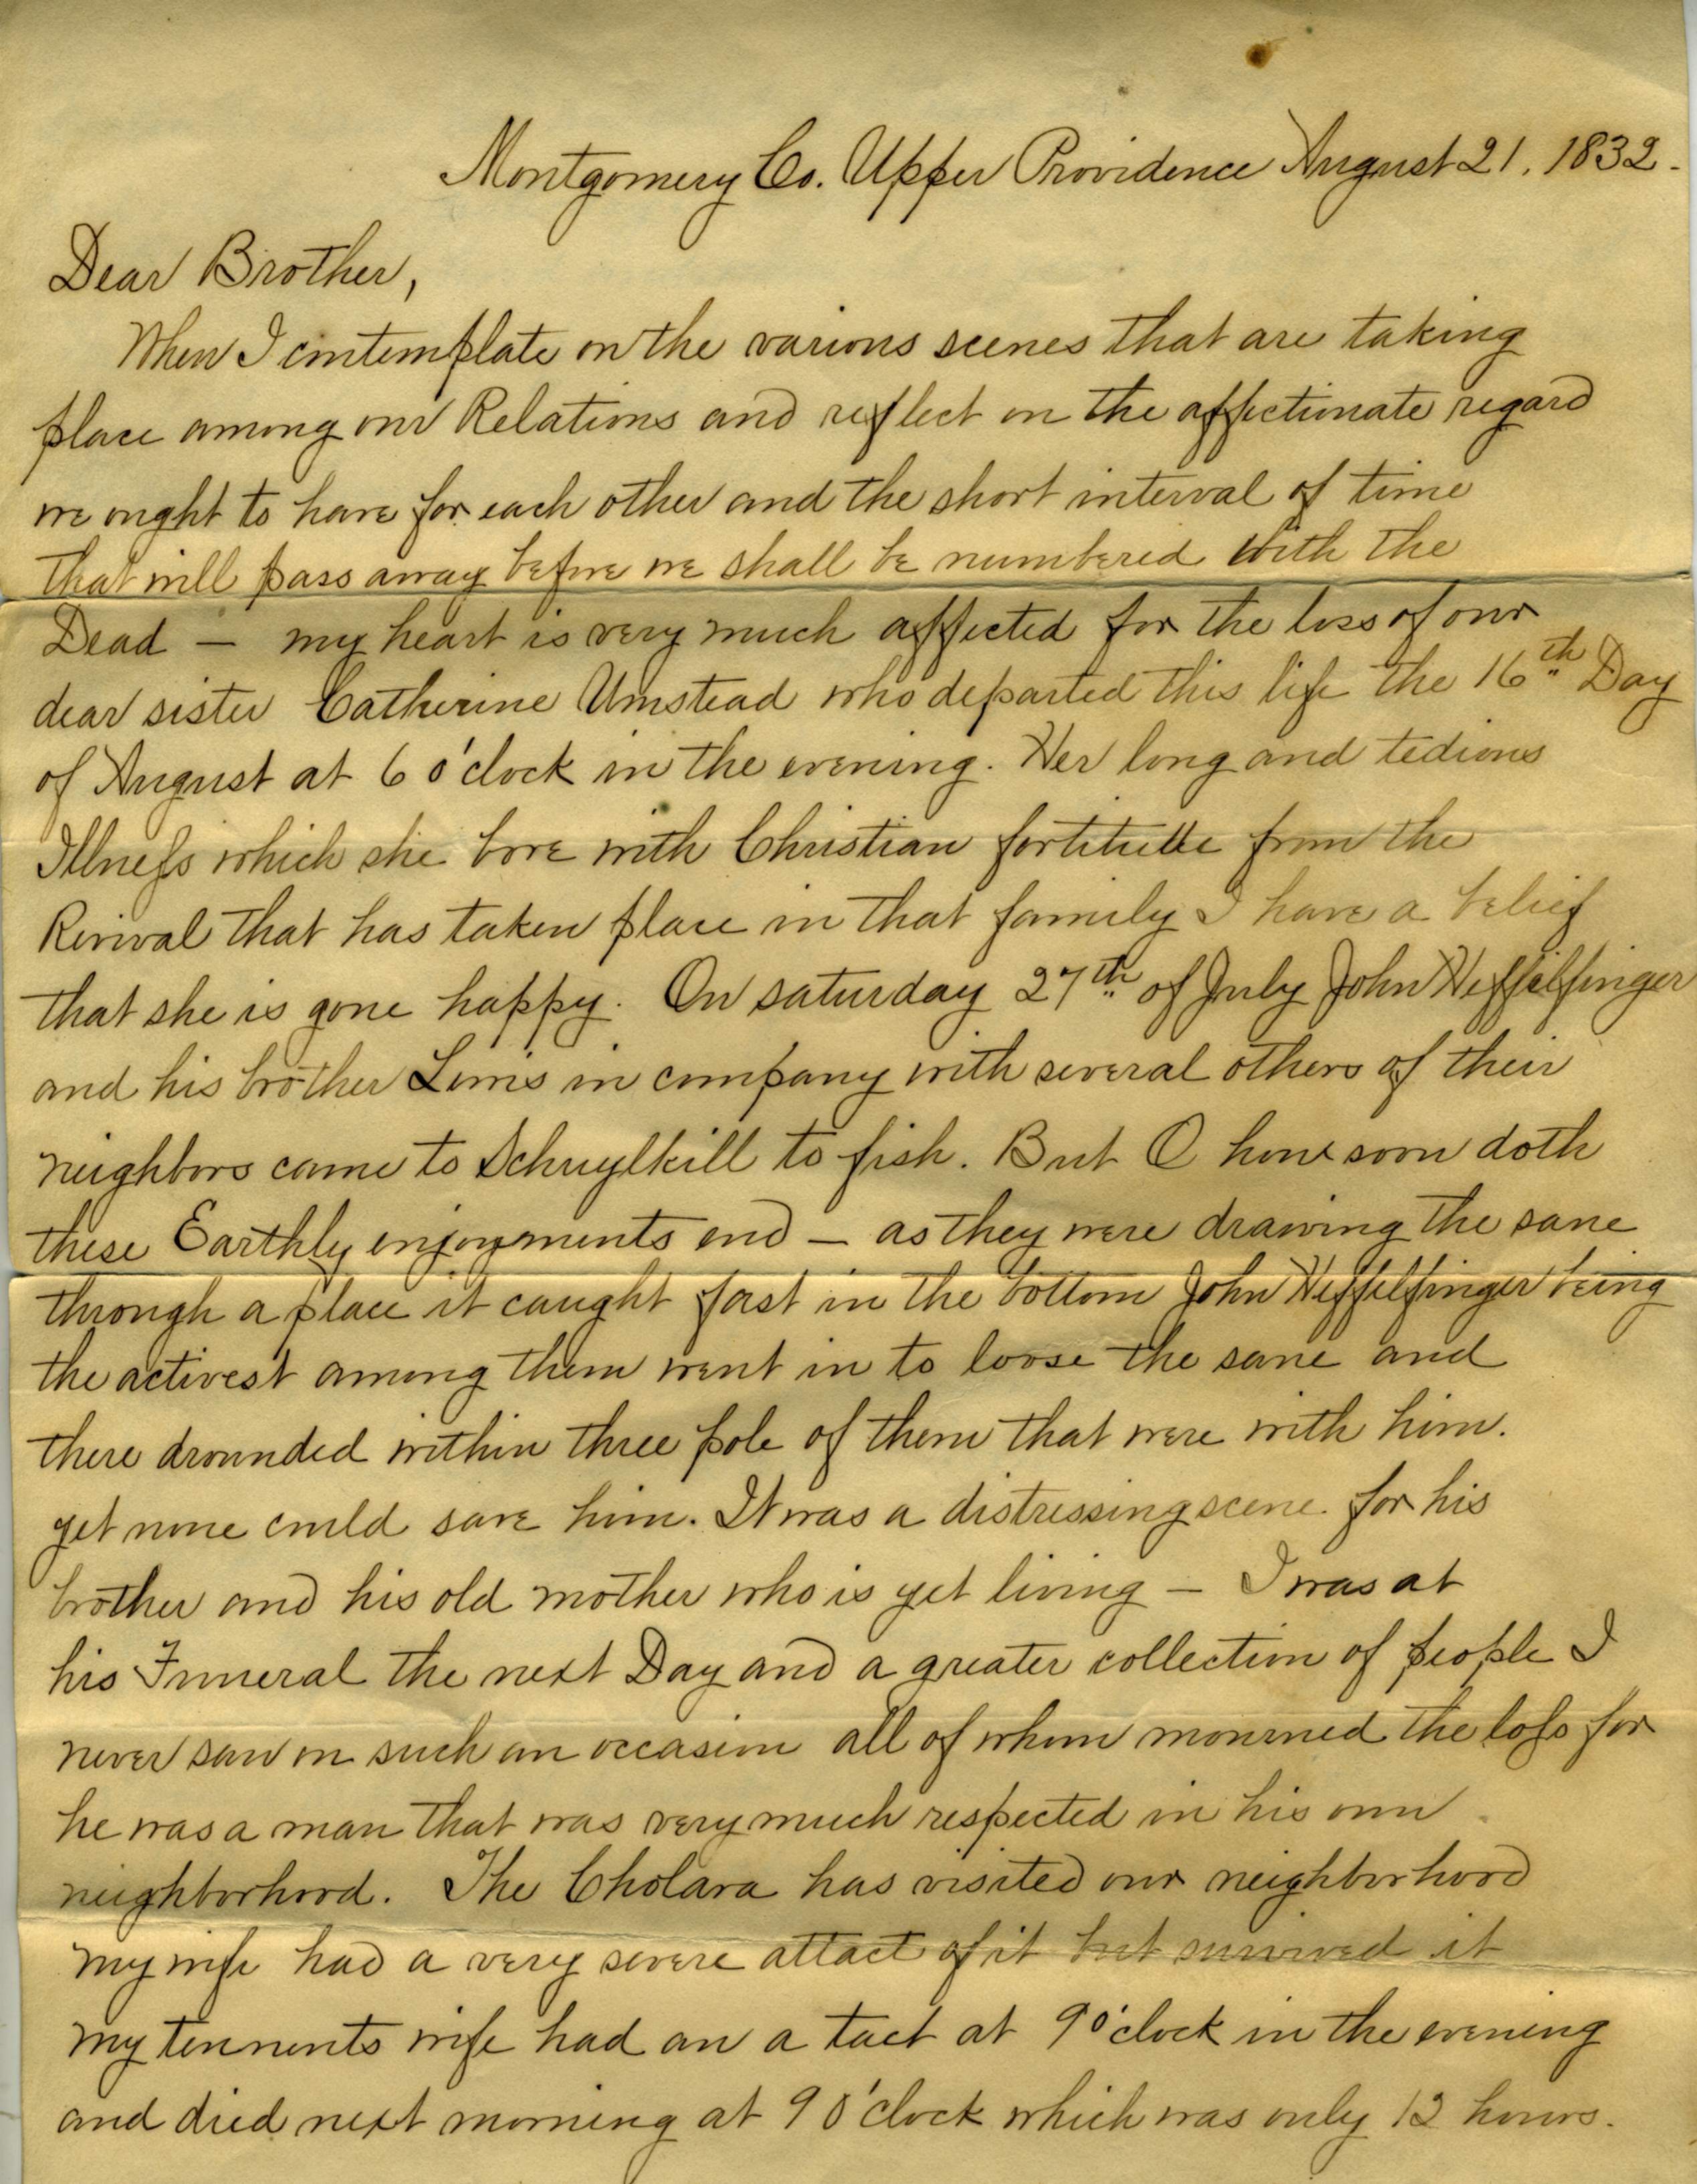 Montgomery Co. Upper Providence August 21, 1832.
Dear Brother,
When I contemplate on the various scenes that are taking
place among our Relations and reflect on the affectionate regard
we ought to have for each other and the short interval of time
that will pass away before we shall be numbered with the
Dead — my heart is very much affected for the loss of our
dear sister Catherine Umstead who departed this life the 16th Day
of August at 6 o'clock in the evening. Her long and tedious
Illness which she bore with Christian fortitude from the
Revival that has taken place in that family I have a belief
that she is gone happy. On saturday 27th of July John Heffelfinger
and his brother Lewis in company with several others of their
neighbors came to Schuylkill to fish. But O how soon doth
these Earthly enjoyments end — as they were drawing the sane
through a place it caught fast in the bottom John Heffelfinger being
the activest among them went in to loose the sane and
there drounded within three pole of them that were with him.
yet none could save him. It was a distressing scene. for his
brother and his old mother who is yet living — I was at
his Funeral the next Day and a greater collection of people I
never saw on such an occasion all of whom mourned the loss for
he was a man that was very much respected in his own
neighborhood. The Cholara has visited our neighborhood
my wife had a very severe attact of it but survived it
my tennents wife had an a tact at 9 o'clock in the evening
and died next morning at 9 o'clock which was only 12 hours.